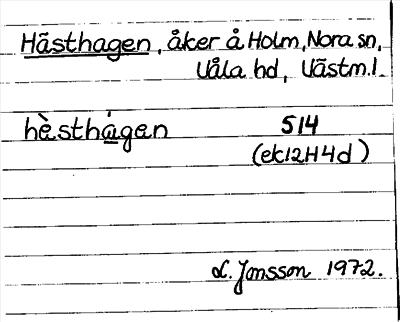 Hästhagen, åker å Holm, Nora sn,
Våla hd, Västm.l.
hèsthágen 514
(ek12H4d)
L. Jonsson 1972.